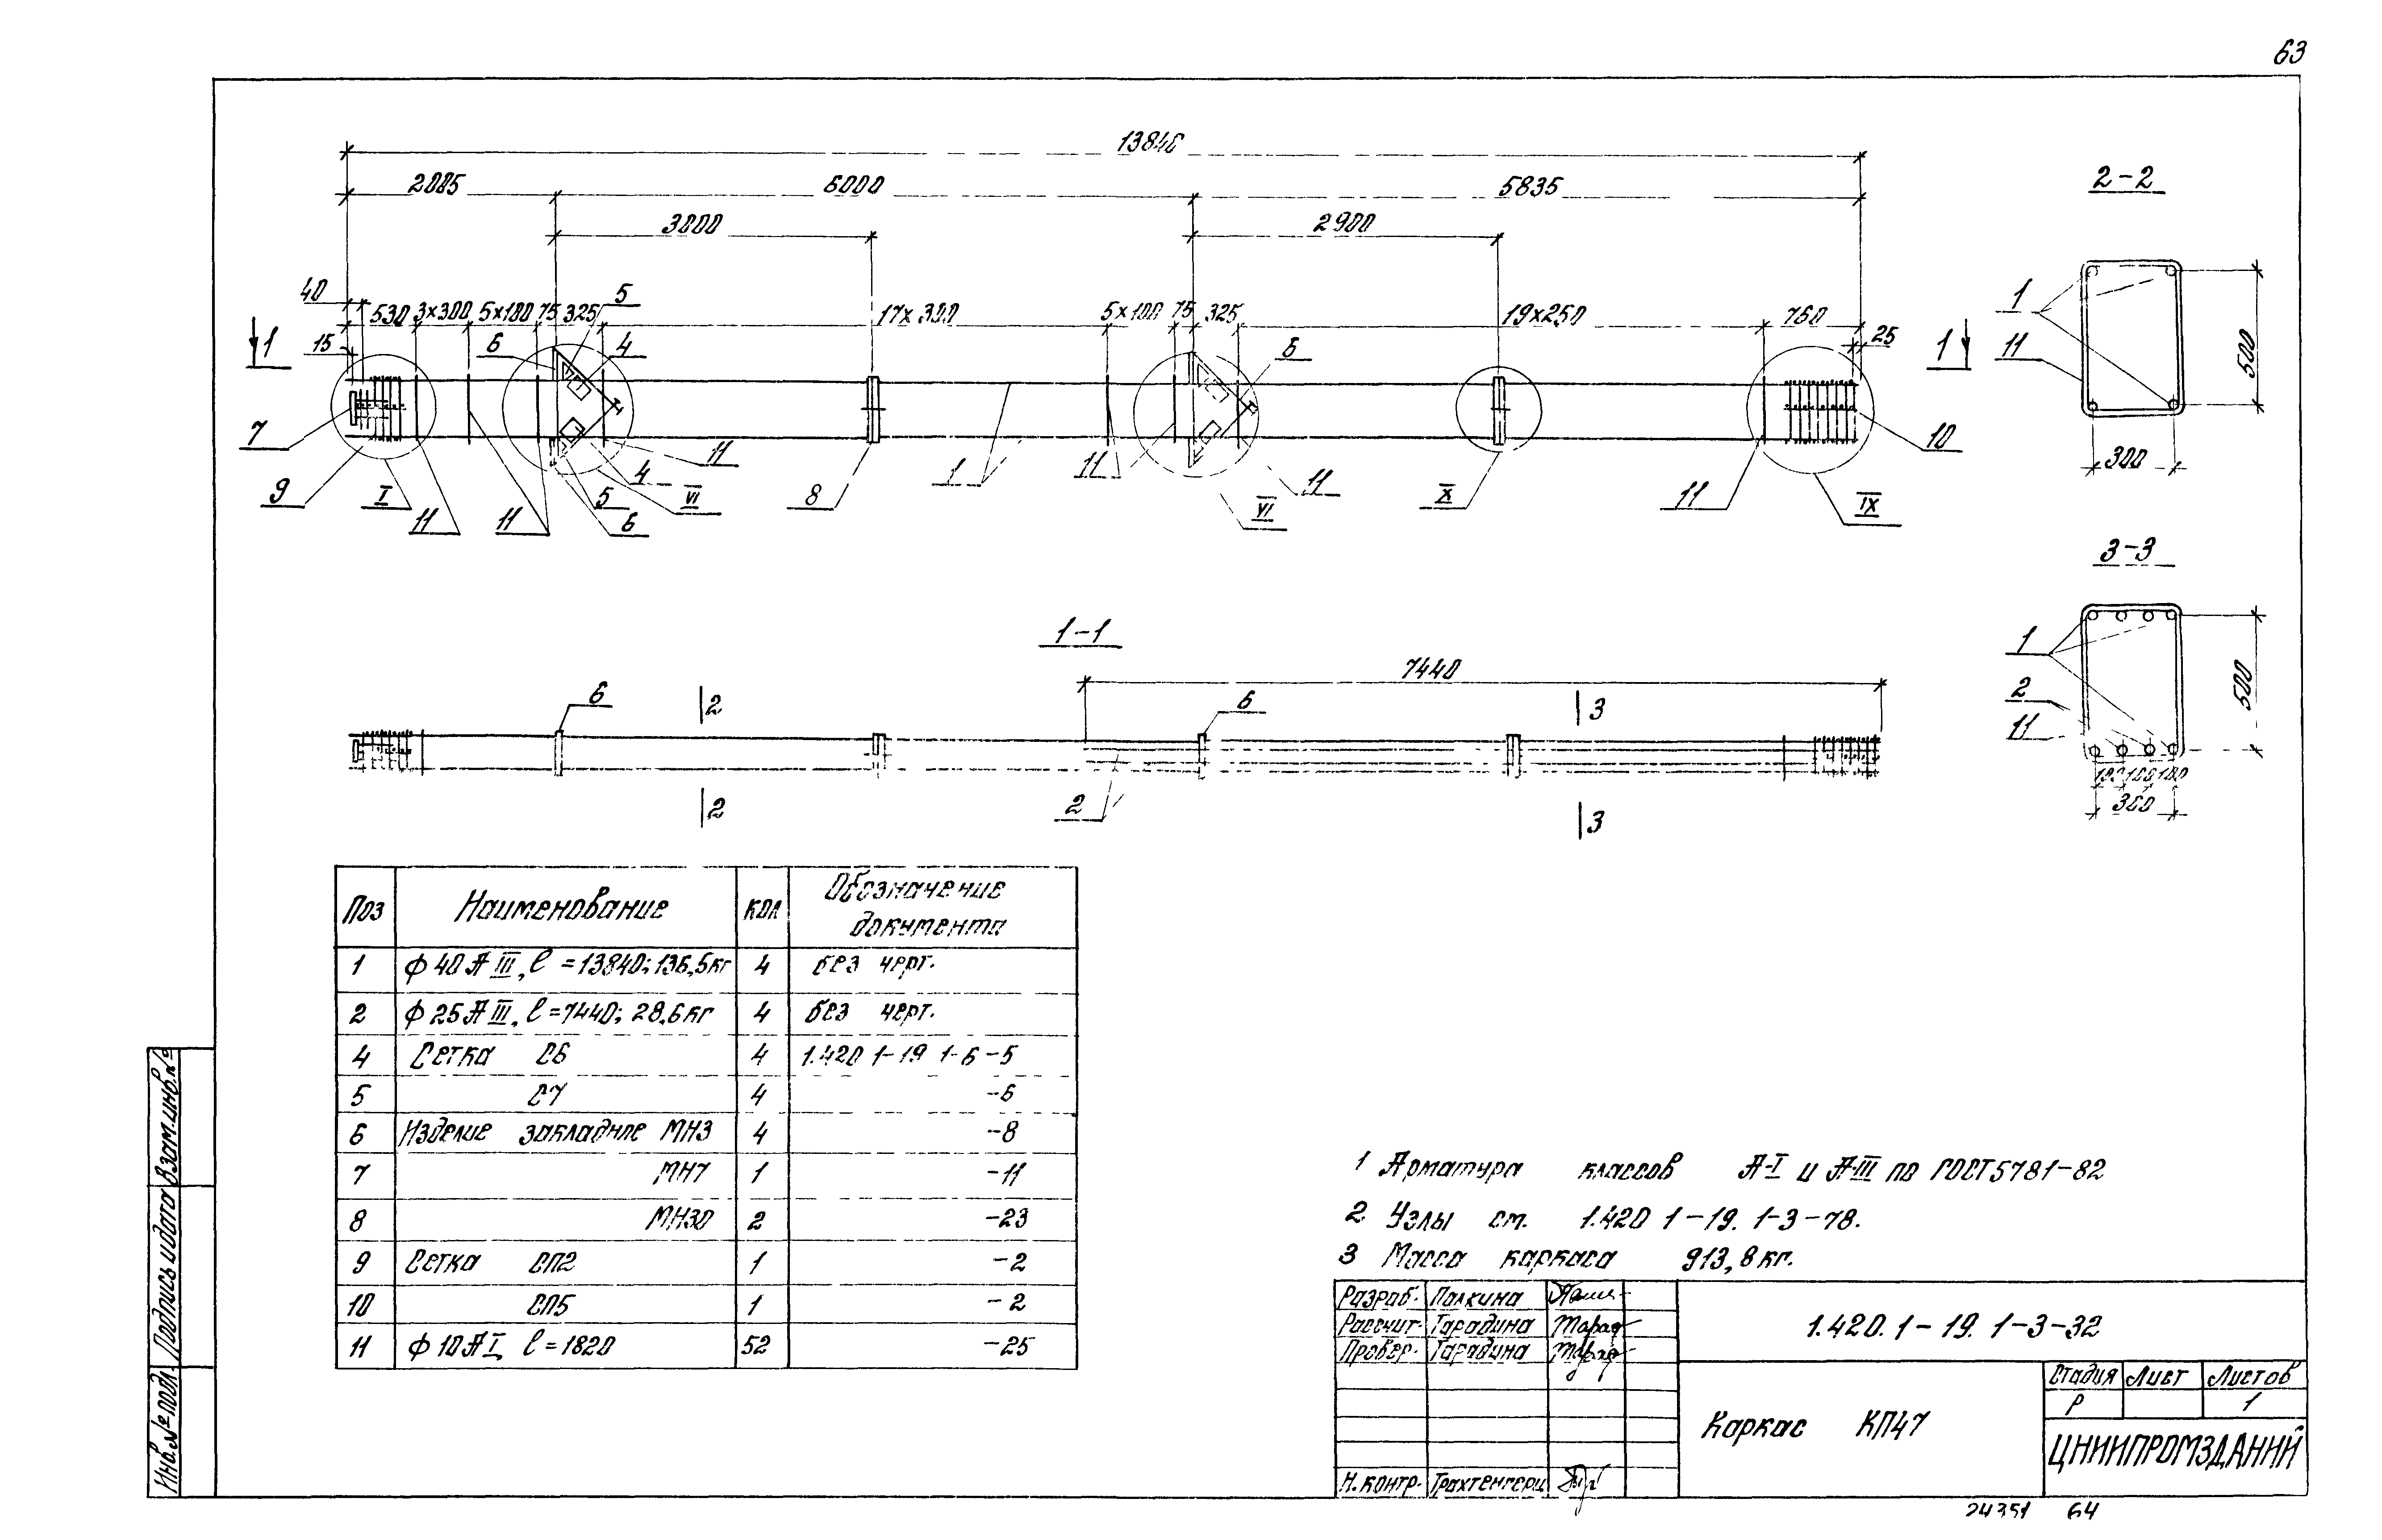 63
13840
2085 6000 5835
3000 2900
2-2
40 530 3×300 5×100 75 325 5 17×300 5×100 75 325 19×250 760
15 6 4 6 25
1 1
1
11
500
300
7 11 4 VI 5 6 11 10
9 I 11 11 8 1 11 VI 11 X 11 IX
3-3
1-1
7440
1
2
11
500
100 100 100
300
6 2 6 3
2 2 3
Поз Наименование кол Обозначение документа
1 ф40АIII, ℓ=13840; 136,5кг 4 без черт.
2 ф25АIII, ℓ=7440; 28,6кг 4 без черт.
4 Сетка С6 4 1.420 1-19 1-6-5
5 С7 4 -6
6 Изделие закладное МН3 4 -8
7 МН7 1 -11
8 МН30 2 -23
9 Сетка СП2 1 -2
10 СП5 1 -2
11 ф10АI, ℓ=1820 52 -25
1 Арматура классов А-I и А-III по ГОСТ5781-82
2 Узлы см. 1.420 1-19. 1-3-78.
3 Масса каркаса 913,8кг.
Разраб. Палкина
Рассчит. Тарадина
Провер. Тарадина
Н.контр. Трахтенгерц
1.420.1-19. 1-3-32
Каркас КП47
Стадия Лист Листов
Р 1
ЦНИИПРОМЗДАНИЙ
Взам.инв.№
Подпись и дата
Инв.№ подл
24351 64